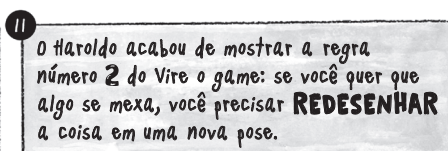 11
O Haroldo acabou de mostrar a regra
número 2 do Vire o game: se você quer que
algo se mexa, você precisar REDESENHAR
a coisa em uma nova pose.